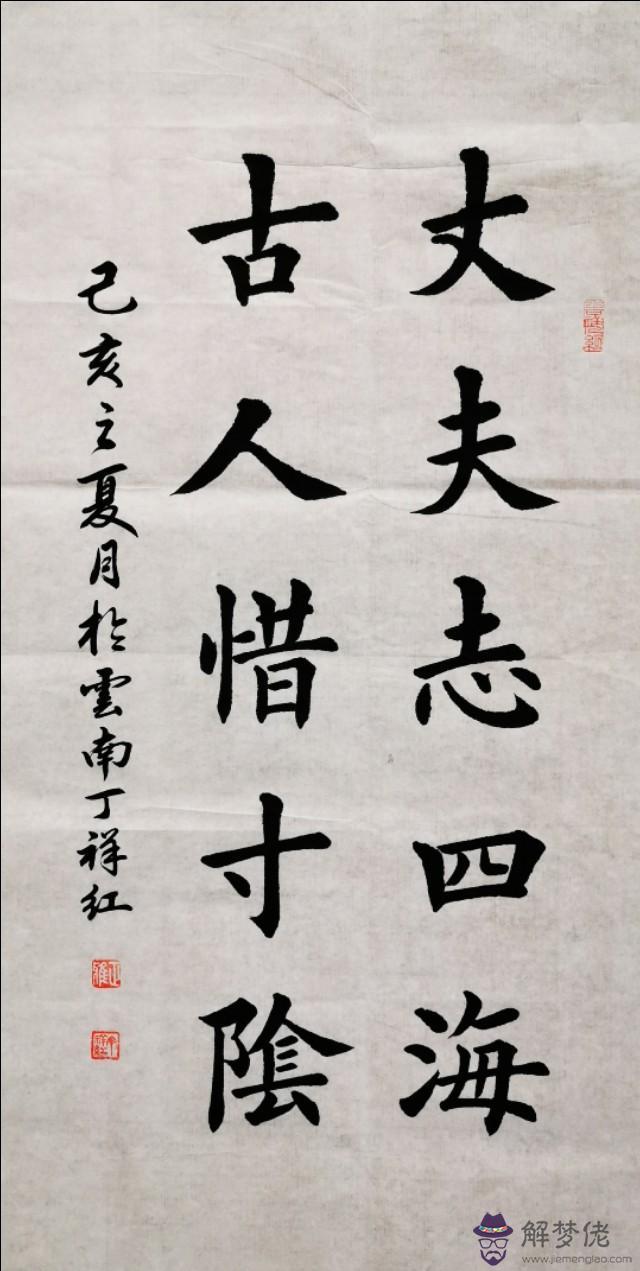 丈夫志四海
古人惜寸陰
己亥之夏月於雲南丁祥红
解梦佬
www.jiemenglao.com